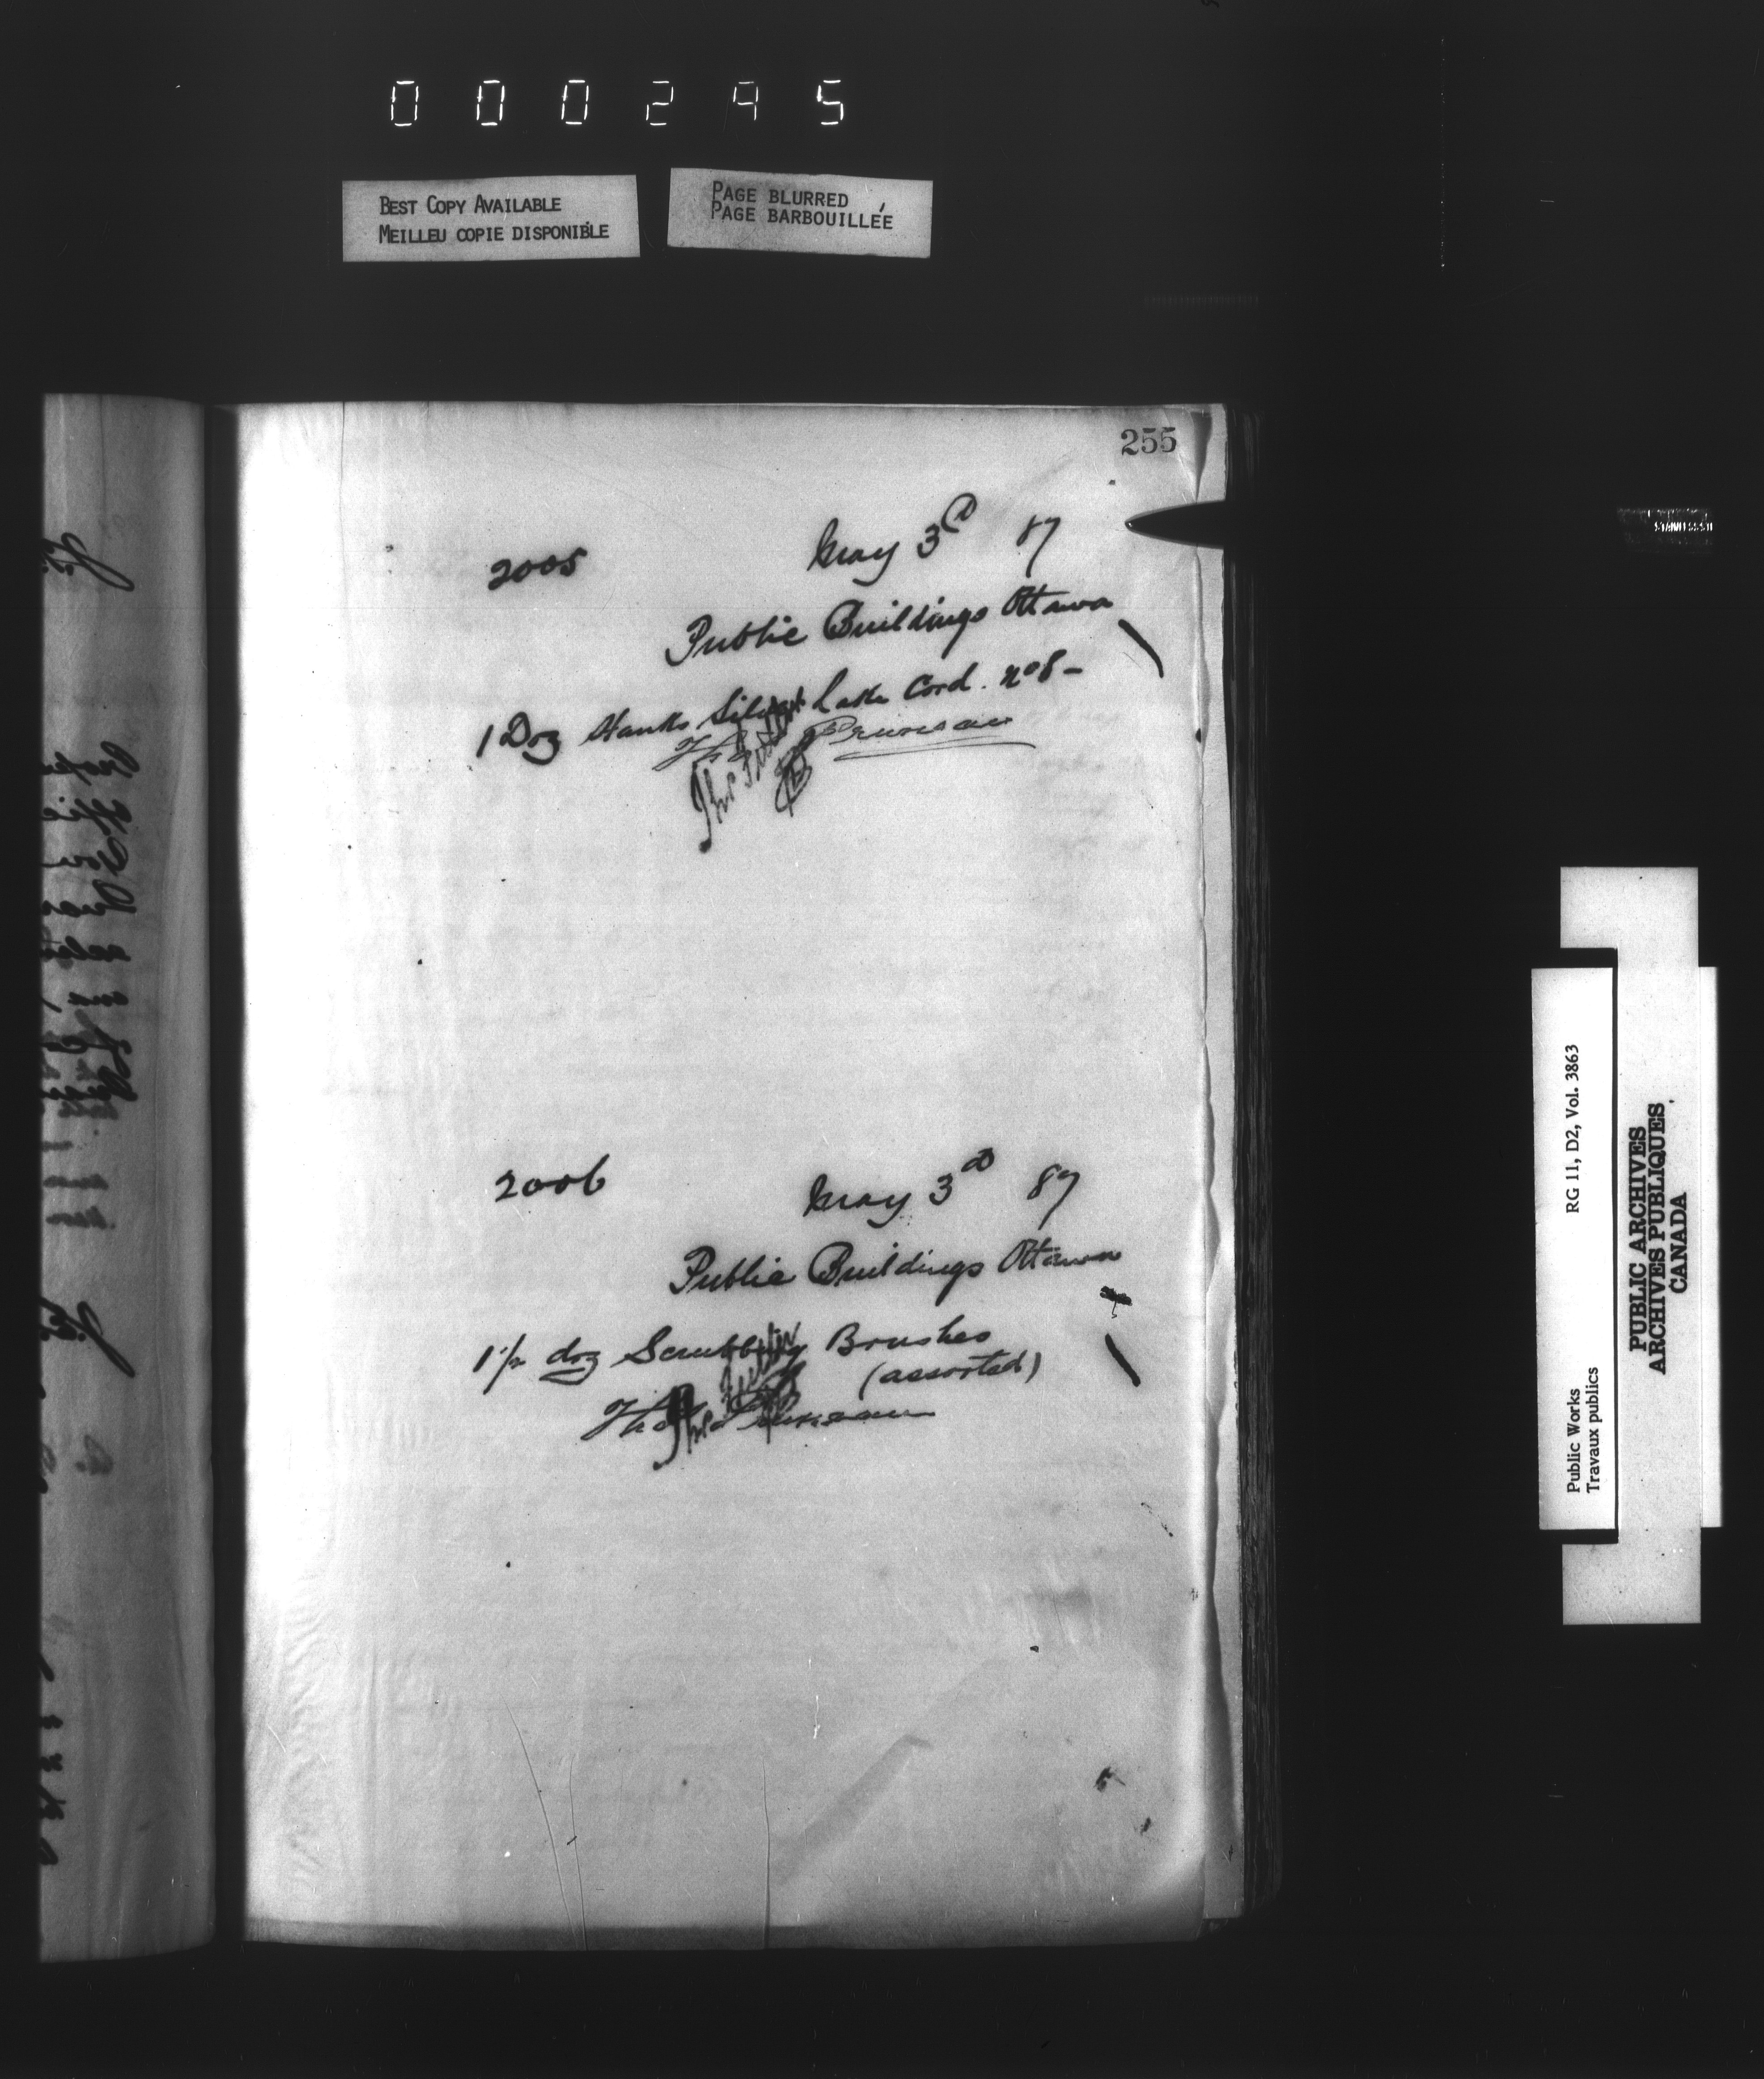 000295
BEST COPY AVAILABLE
MEILLEU COPIE DISPONIBLE
PAGE BLURRED
PAGE BARBOUILLÉE
255
2005
May 3d 87
Public Buildings Ottawa
1 Doz Hanks Silver Lake Cord. No 8 -
Pruneau
2006
May 3d 87
Public Buildings Ottawa
1 1/2 doz Scrubbing Brushes
(assorted)
Pruneau
Public Works
Travaux publics
RG 11, D2, Vol. 3863
PUBLIC ARCHIVES
ARCHIVES PUBLIQUES
CANADA